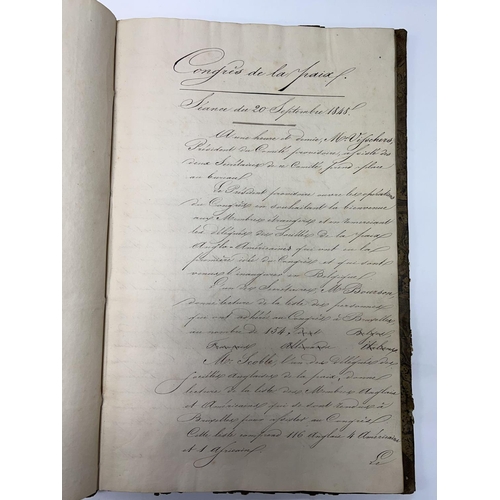 Congrès de la Paix.
Séance du 20 Septembre 1848.
A une heure et demie, Mr Visschers,
Président du Comité provisoire, assisté des
deux Secrétaires de ce Comité, prend place
au bureau.
Le Président provisoire ouvre les opérations
du Congrès en souhaitant la bienvenue
aux Membres étrangers et en remerciant
les délégués des Sociétés de la paix
Anglo-Américaines qui ont eu la
première idée du Congrès et qui sont
venus l'inaugurer en Belgique.
L'un des Secrétaires, Mr Bourson
donne lecture de la liste des personnes
qui ont adhéré au Congrès à Bruxelles
au nombre de 154.
Français
Mr Scoble, l'un des délégués des
Sociétés Anglaises de la paix, donne
lecture de la liste des Membres Anglais
et Américains qui se sont rendus à
Bruxelles pour assister au Congrès.
Cette liste comprend 116 Anglais 4 Américains
et 1 Africain.
Le